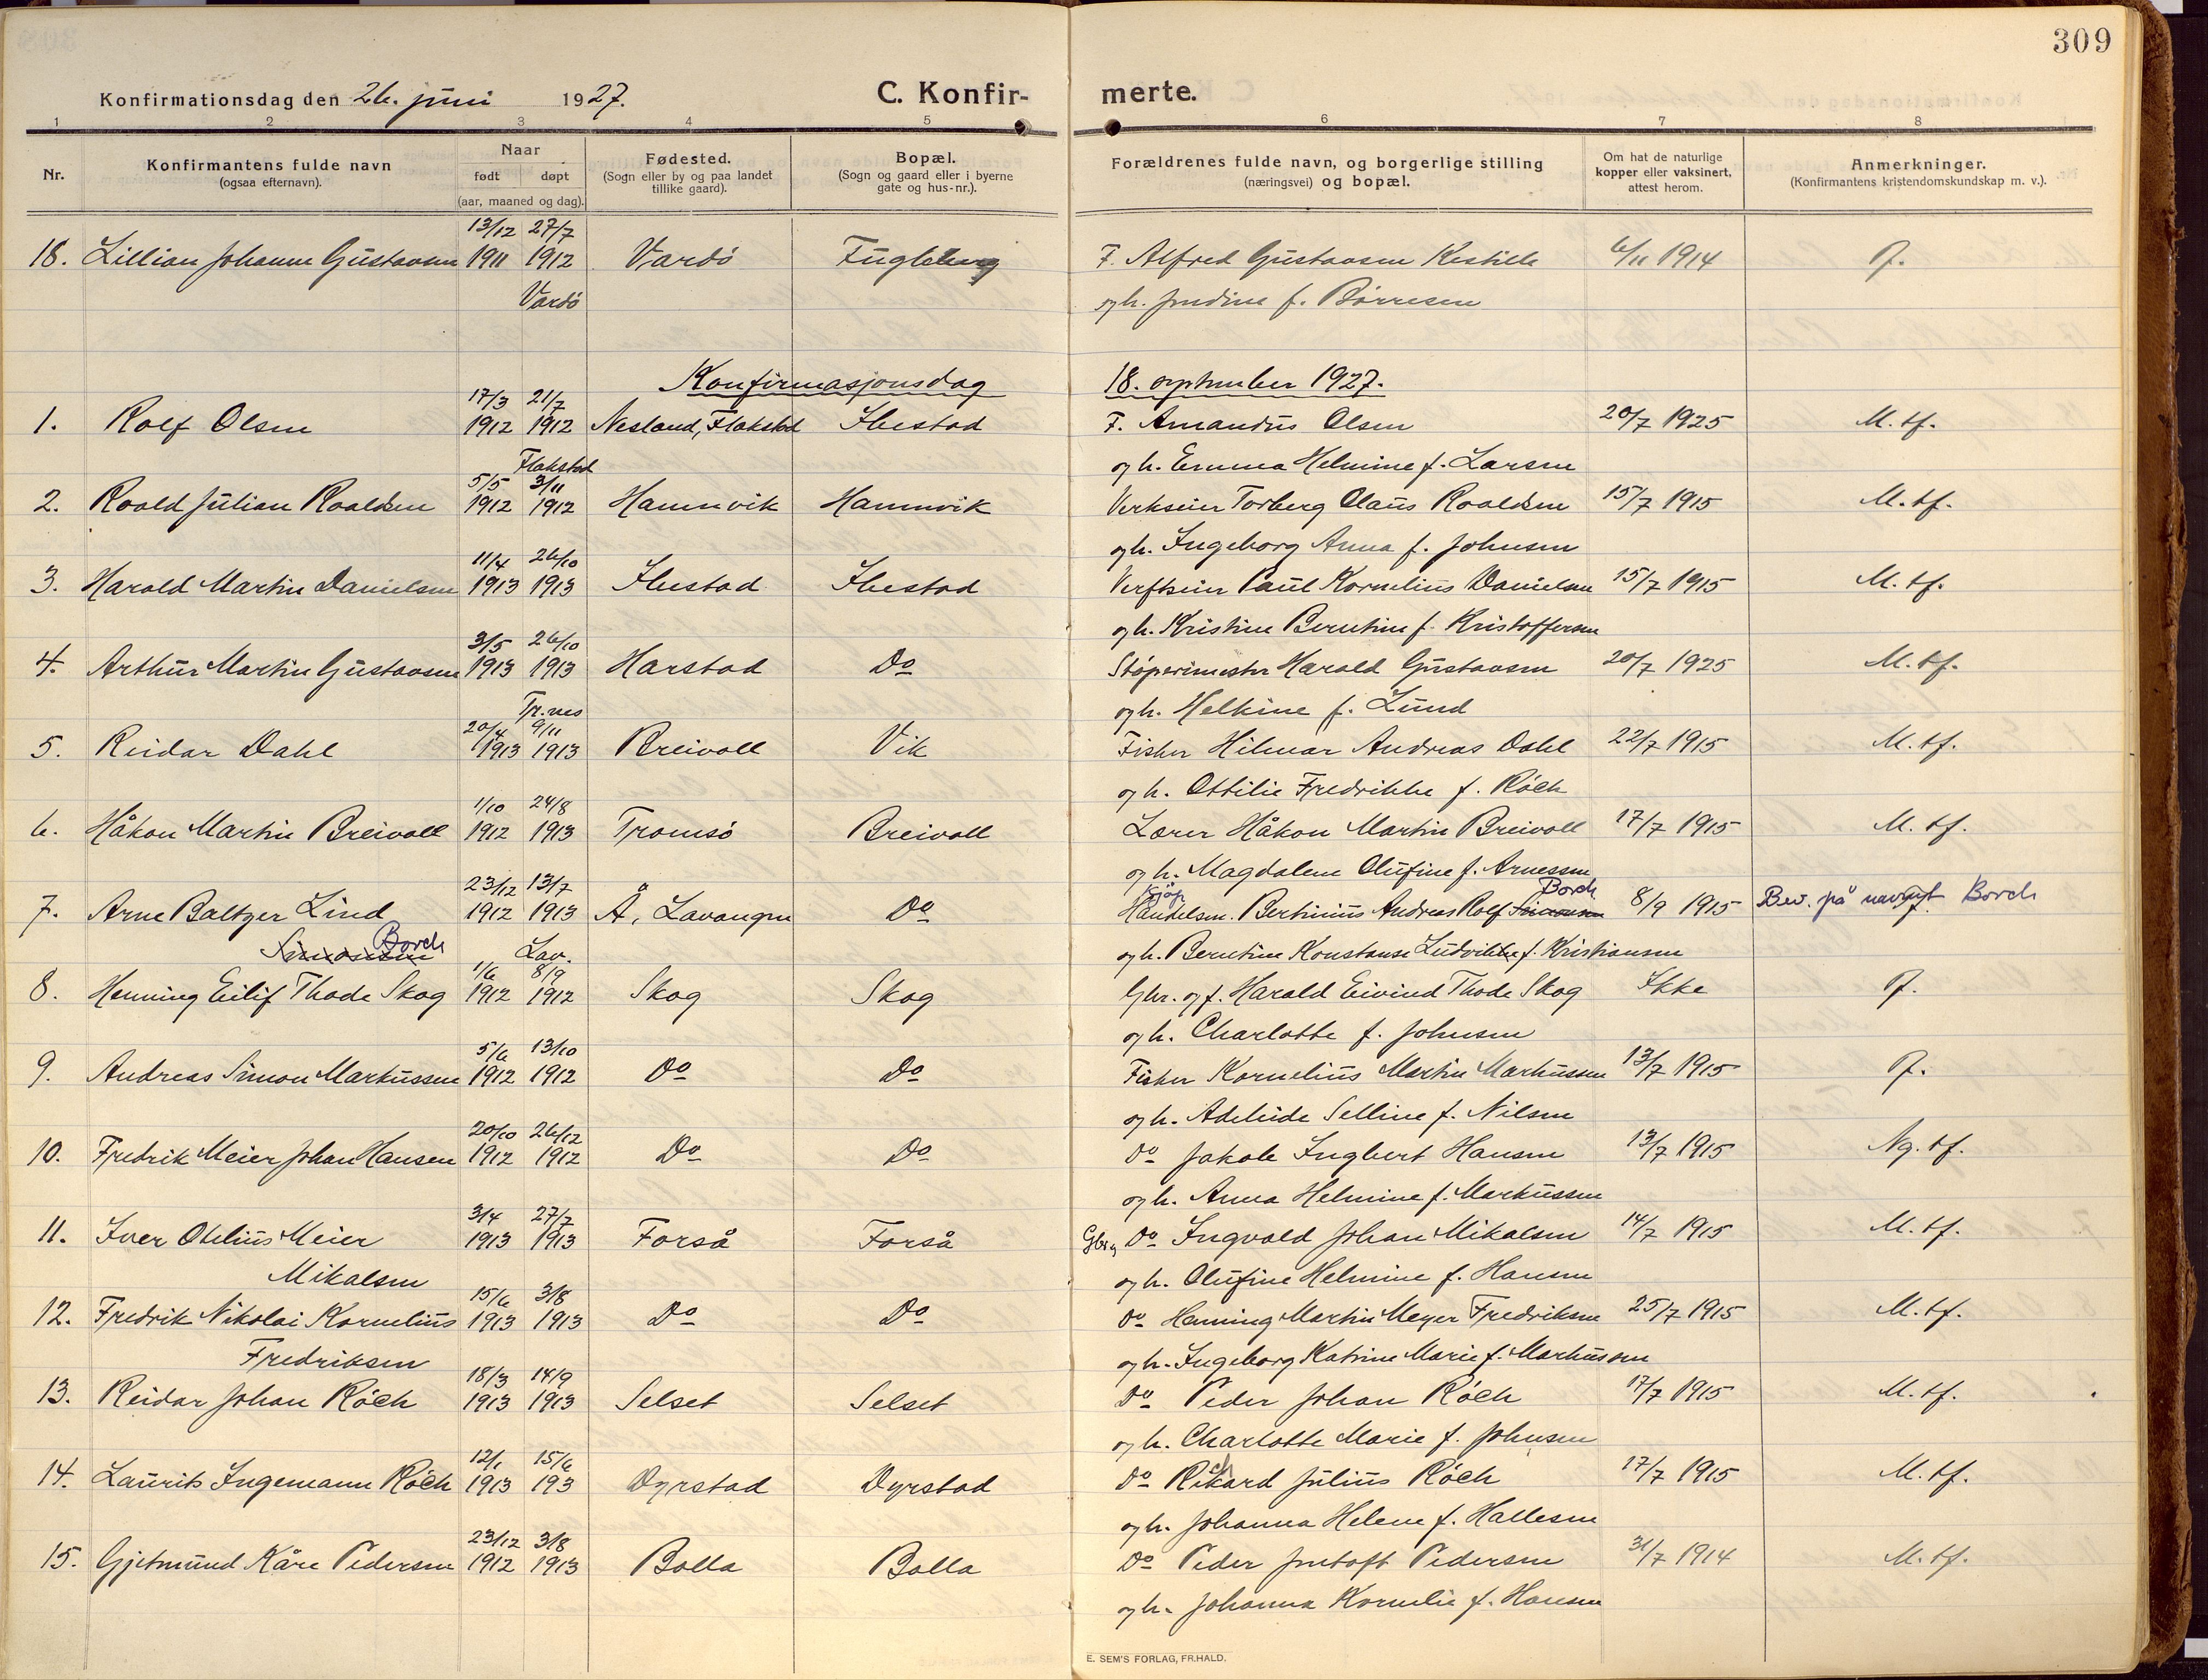 309
Konfirmationsdag den 26. juni 1927. C. Konfir- merte.
1 2 3 4 5 6 7 8
Nr. Konfirmantens fulde navn (ogsaa efternavn). Naar født døpt (aar, maaned og dag). Fødested. (Sogn eller by og paa landet tillike gaard). Bopæl. (Sogn og gaard eller i byerne gate og hus-nr.). Forældrenes fulde navn, og borgerlige stilling (næringsvei) og bopæl. Om hat de naturlige kopper eller vaksinert, attest herom. Anmerkninger. (Konfirmantens kristendomskundskap m. v.).
13/12 27/7
18. Lillian Johanne Gustavsen 1911 1912 Vardö Fugleberg F. Alfred Gustavsen 6/11 1914
Vardö og h. f. Börresen
Konfirmasjonsdag 18. september 1927.
17/3 21/7
1. Rolf Olsen 1912 1912 Nesland, Flakstad Ibestad F. Amandus Olsen 20/7 1925 M. tf.
Flakstad og h. Emma Helmine f. Larsen
5/5 3/11
2. Roald Julian Roaldsen 1912 1912 Hamnvik Hamnvik Verkseier Torberg Olaus Roaldsen 15/7 1915 M. tf.
og h. Ingeborg Anna f. Johnsen
11/4 26/10
3. Harald Martin Danielsen 1913 1913 Ibestad Ibestad Verftseier Paul Kornelius Danielsen 15/7 1915 M. tf.
og h. Kristine Berntine f. Kristoffersen
3/5 26/10
4. Arthur Martin Gustavsen 1913 1913 Harstad Do Støperimester Harald Gustavsen 20/7 1925 M. tf.
Tr.nes og h. Helkine f. Lund
20/4 9/11
5. Reidar Dahl 1913 1913 Breivoll Vik Fisker Hilmar Andreas Dahl 22/7 1915 M. tf.
og h. Ottilie Fredrikke f. Röch
1/10 24/8
6. Håkon Martin Breivoll 1912 1913 Tromsö Breivoll Lærer Håkon Martin Breivoll 17/7 1915 M. tf.
og h. Magdalene Olufine f. Arnessen
23/12 13/7 Kjöp Borch
7. Arne Baltzer Lind 1912 1913 Å, Lavangen Do Handelsm. Bertinius Andreas Rolf Simonsen 8/9 1915 Bev. på Borch
Simonsen Borch Lav. og h. Berntine Konstanse Ludvikke f. Kristiansen
1/6 8/9
8. Henning Eilif Thode Skog 1912 1912 Skog Skog Gbr. og f. Harald Eivind Thode Skog Ikke
og h. Charlotte f. Johnsen
5/6 13/10
9. Andreas Simon Markussen 1912 1912 Do Do Fisker Kornelius Martin Markussen 13/7 1915
og h. Adeleide Selline f. Nilsen
20/10 26/12
10. Fredrik Meier Johan Hansen 1912 1912 Do Do Do Jakob Ingbert Hansen 13/7 1915 Ng. tf.
og h. Anna Helmine f. Markussen
3/4 27/7
11. Iver Otelius Meier 1913 1913 Forså Forså Gbr. og Do Ingvald Johan Mikalsen 14/7 1915 M. tf.
Mikalsen og h. Olufine Helmine f. Hansen
15/6 3/8
12. Fredrik Nikolai Kornelius 1913 1913 Do Do Do Henning Martin Meyer Fredriksen 25/7 1915 M. tf.
Fredriksen og h. Ingeborg Katrine Marie f. Markussen
18/3 14/9
13. Reidar Johan Röch 1913 1913 Selset Selset Do Peder Johan Röch 17/7 1915 M. tf.
og h. Charlotte Marie f. Johnsen
12/1 15/6
14. Laurits Ingemann Röch 1913 193 Dyrstad Dyrstad Do Rikard Julius Röch 17/7 1915 M. tf.
og h. Johanna Helene f. Hallesen
23/12 3/8
15. Gjetmund Kåre Pedersen 1912 1913 Bolla Bolla Do Peder Jentoft Pedersen 31/7 1914 M. tf.
og h. Johanna Kornelie f. Hansen
E. SEM'S FORLAG, FR.HALD.